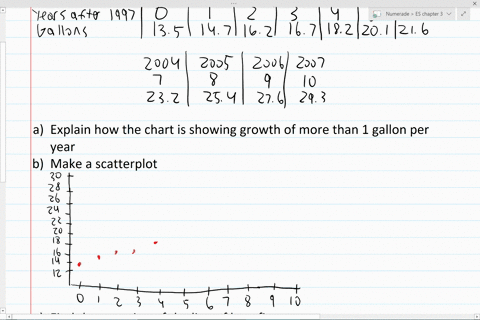 Numerade – ES chapter 3
Years after 1997 | 0 | 1 | 2 | 3 | 4
Gallons | 13.5 | 14.7 | 16.2 | 16.7 | 18.2 | 20.1 | 21.6
2004 | 2005 | 2006 | 2007
7 | 8 | 9 | 10
23.2 | 25.4 | 27.6 | 29.3
a) Explain how the chart is showing growth of more than 1 gallon per
year
b) Make a scatterplot
30
28
26
24
22
20
18
16
14
12
0 1 2 3 4 5 6 7 8 9 10